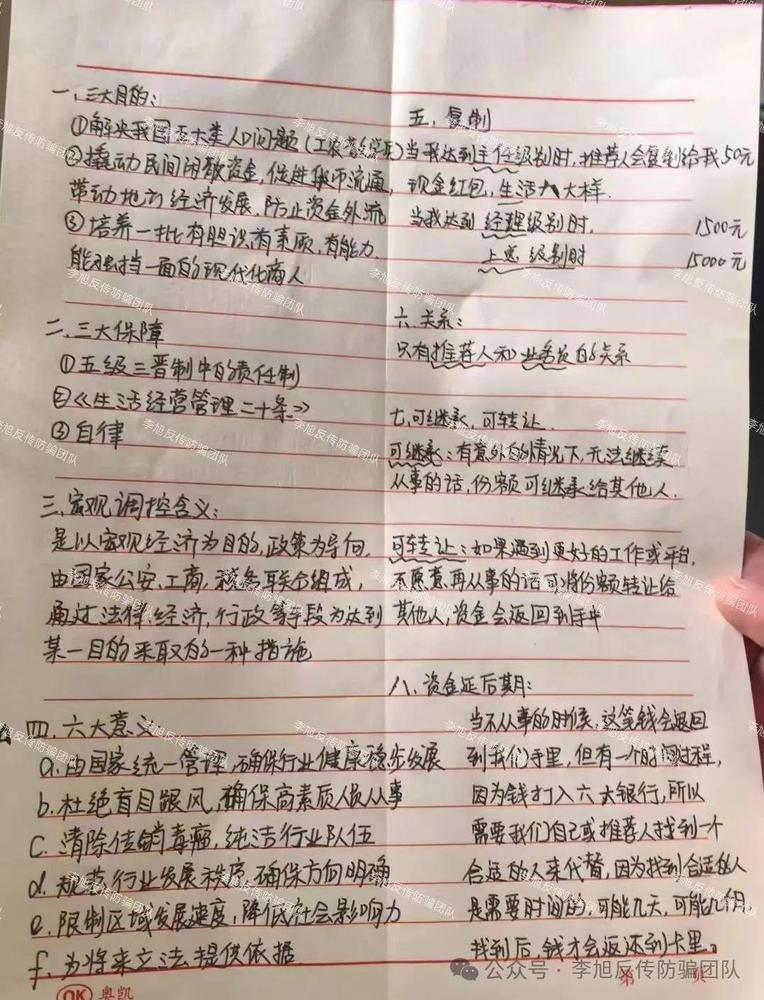 一、三大目的:
①解决我国五大类人口问题(工农商学兵)
②撬动民间闲散资金,促进货币流通,
带动地方经济发展,防止资金外流
③培养一批有胆识,有素质,有能力,
能独挡一面的现代化商人
二、三大保障
①五级三晋制中的责任制
②《生活经营管理二十条》
③自律
三、宏观调控含义:
是以宏观经济为目的,政策为导向,
由国家公安、工商、税务联合组成,
通过法律、经济,行政等手段为达到
某一目的采取的一种措施
四、六大意义:
a.由国家统一管理,确保行业健康稳步发展
b.杜绝盲目跟风,确保高素质人员从事
c.清除传销毒瘤,纯洁行业队伍
d.规范行业发展秩序,确保方向明确
e.限制区域发展速度,降低社会影响力
f.为将来立法提供依据
五、复制
当我达到主任级别时,推荐人会复制给我50元
现金红包,生活八大样.
当我达到经理级别时, 1500元
上总级别时 15000元
六、关系:
只有推荐人和业务员的关系
七、可继承,可转让.
可继承:有意外的情况下,无法继续
从事的话,份额可继承给其他人.
可转让:如果遇到更好的工作或平台,
不愿意再从事的话可将份额转让给
其他人,资金会返回到手中
八、资金延后期:
当不从事的时候,这笔钱会退回
到我们手里,但有一个时间过程,
因为钱打入六大银行,所以
需要我们自己或推荐人找到一个
合适的人来代替,因为找到合适的人
是需要时间的,可能几天,可能几个月,
找到后,钱才会返还到卡里。
OK 奥凯
第 页
公众号·李旭反传防骗团队
李旭反传防骗团队